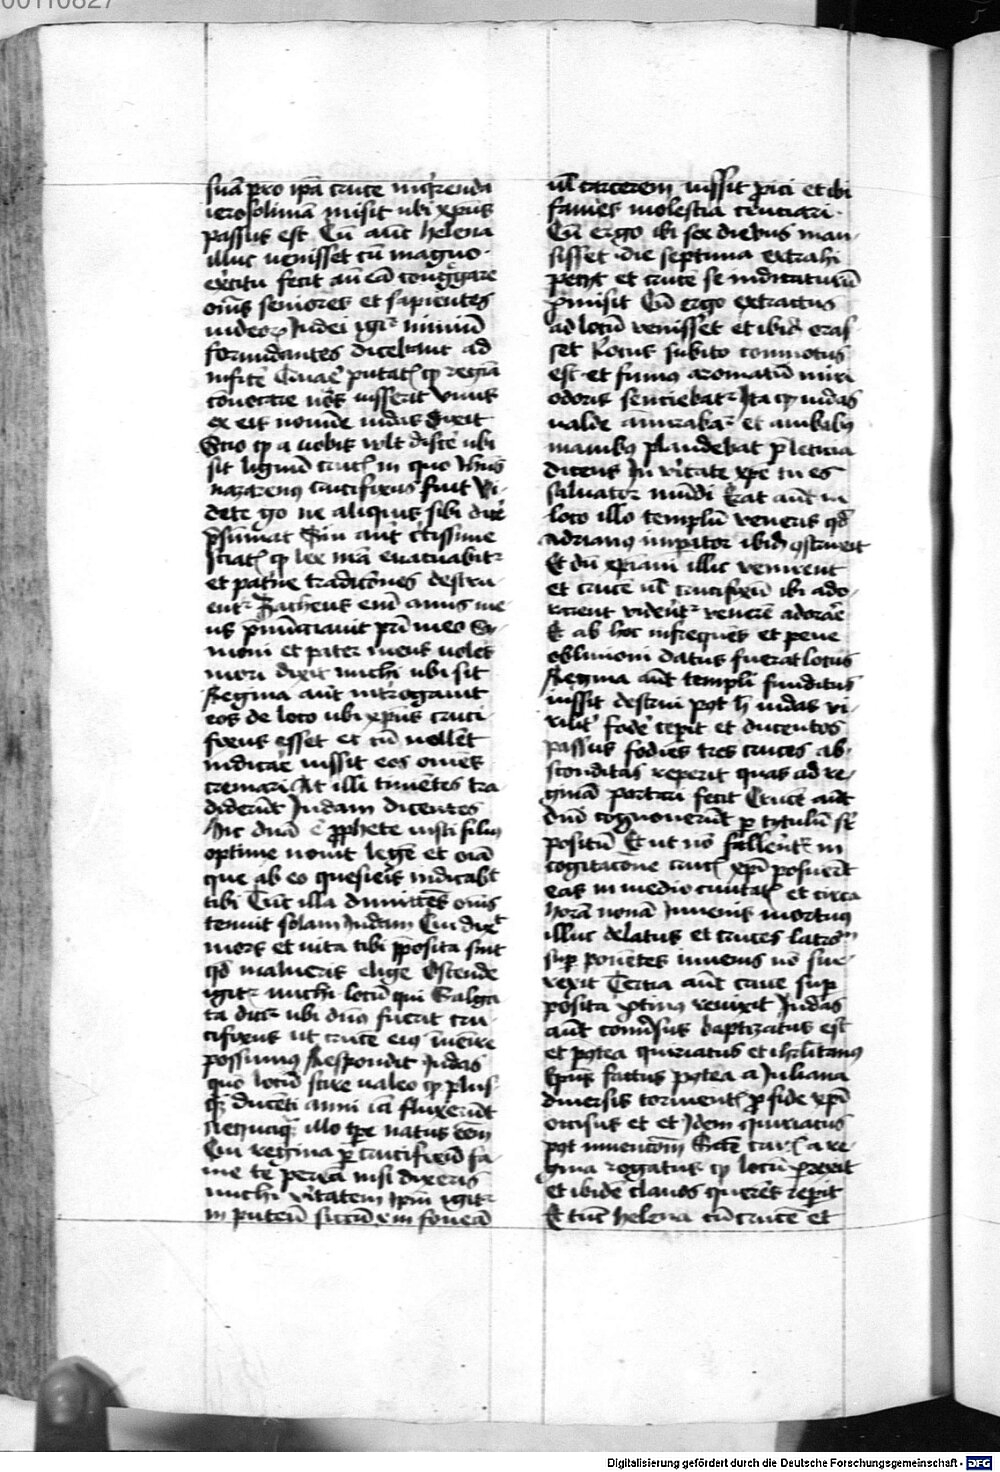 00110827
suā pro ip̄a cruce inq̄renda
ierosolimā misit ubi xp̄us
passus est Cū aūt helena
illuc uenisset cū magno
ex̄citu fecit añ eā cong̃gare
om̄s seniores et sapientes
iudeoꝝ Judei igr̄ nimiū
formidantes dicebant ad
inūicē Cur putatꝭ ꝙ regīa
conuocare nōs iusserit vnus
ex eis noīe iudas dixit
Scio ꝙ a nobis vlt discē ubi
sit lignū crucꝭ in quo ih̄us
nazarenꝰ crucifixus fuit Vi-
dete ḡo ne aliquis sibi dicē
p̄sumat Sin aūt c̄tissime
sciatꝭ ꝙ lex n̄ra euacuabitr̄
et pat̄ne tradicōnes destru-
entr̄ Zacheus eīn auus me-
us p̄nūciauit pr̄i meo Sy-
moni et pater meus uolēs
mori dixit michi ubi sit
Regina aūt int̄rogauit
eos de loco ubi xp̄us cruci-
fixus esset et cū nollēt
indicāe iussit eos omēs
cremari At illi timētes tra-
diderūt Judam dicentes
Hic dn̄a ē ꝓphete iusti filiꝰ
optime nouit legē et oīa
que ab eo quesieris indicabit
tibi Tūc illa dimittēs om̄s
tenuit solam Judam Cui dixt
mors et uita tibi ꝓposita sunt
qd̄ malueris elige Ostende
igitr̄ michi locū qui Galga-
ta dicr̄ ubi dn̄s fuerit cru-
cifixus ut crucē eiꝰ inuēire
possimꝰ Respondit Judas
quō locū scire ualeo ꝙ plus-
ꝙ ducēti anni iā fluxerūt
nequaqꝫ illo tp̄e natus eēm
Cui regina ꝑ crucifixū fa-
me te perdā nisi dixeris
michi v̄itatem ip̄m igitr̄
in puteū siccū x in foueā
ul̄ carcerem iussit ꝓici et ibi
famis molestia cruciari
Cū ergo ibi sex diebus man-
sisset die septima extrahi
petijt et crucē se indicaturū
ꝓmisit Cū ergo extractus
ad locū venisset et ibid̄ oras-
set locus subito conmotus
est et fumꝰ aromatū miri
odoris senciebatr̄ Ita ꝙ iudas
valde am̄irabatr̄ et ambabꝰ
manibꝰ plaudebat p̄ leticia
dicens In v̄itate xp̄e tu es
saluator mūdi Erat aūt in
loco illo templū veneris qd̄
adrianꝰ imꝑator ibid̄ ꝯstruxit
Et dū xp̄iani illic venirent
et crucē ul̄ crucifixū ibi ado-
rarent videntr̄ venerē adorāe
Et ab hoc infrequēs et pene
obliuioni datus fuerat locus
Regina aūt templū funditus
iussit destrui pꝰt h̄ iudas vi-
rilit̄ fodē cepit et ducentos
passus fodiēs tres cruces ab-
sconditas reperit quas ad re-
ginā portari fecit Crucē aūt
dn̄i cognouerūt ꝑ tytulū sr̄
positū Et ut nō fallerēt in
cogitacōne crucꝭ xp̄i posuerūt
eas in medio ciuitatꝭ et circa
horā nonā Juuenis mortuꝰ
illuc delatus et cruces latrōnū
suꝑ ponētes iuuenis nō sur-
rexit Tercia aūt cruce suꝑ
posita ꝓtinꝰ reuixit Judas
aūt conūsus baptizatus est
et pꝰtea quiriatus et ih̄rl̄itanꝰ
ep̄us factus pꝰtea a Juliana
diuersis tormentꝭ ꝓ fide xp̄i
occisus et et Idem quiriatus
pꝰt inuencōm Scē crucꝭ a re-
gina rogatus ꝙ locū ꝑrexit
et ibidē clauos querēs repīt
Et tūc helena cū cruce et
Digitalisierung gefördert durch die Deutsche Forschungsgemeinschaft - DFG